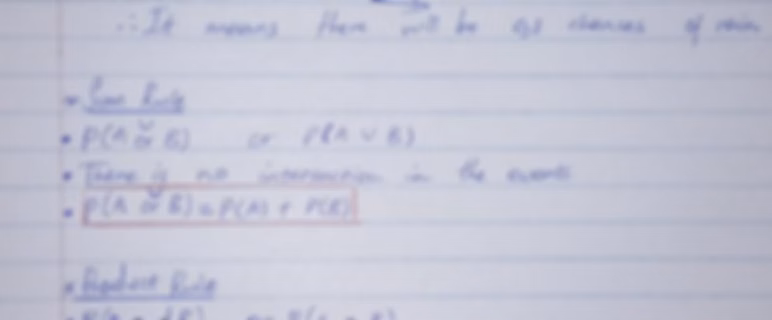 ∴ It means there will be chances of rain
Sum Rule
• P(A or B) or P(A ∪ B)
• There is no intersection in the events
• P(A or B) = P(A) + P(B)
• Product Rule